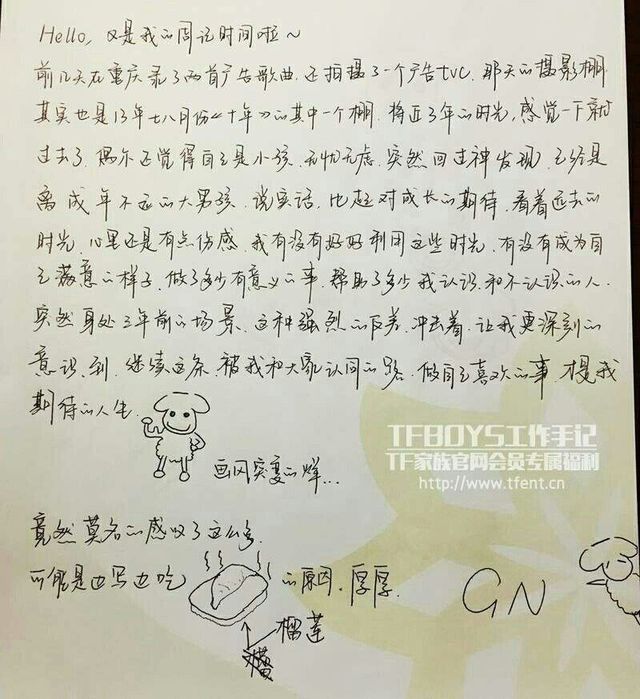 Hello, 又是我的周记时间啦~
前几天在重庆录了两首广告歌曲,还拍摄了一个广告tvc.那天的摄影棚
其实也是13年七八月份《十年》的其中一个棚.将近3年的时光,感觉一下就
过去了.偶尔还觉得自己是小孩.无忧无虑.突然回过神发现,已经是
离成年不远的大男孩.说实话,比起对成长的期待,看着逝去的
时光,心里还是有点伤感.我有没有好好利用这些时光.有没有成为自
己满意的样子.做了多少有意义的事.帮助了多少我认识和不认识的人.
突然身处三年前的场景.这种强烈的反差.冲击着.让我更深刻的
意识到.继续这条被我和大家认同的路.做自己喜欢的事,才是我
期待的人生.
TFBOYS工作手记
TF家族官网会员专属福利
http://www.tfent.cn
画风突变的烊...
竟然莫名的感叹了这么多.
可能是边写边吃
的原因.厚厚.
榴莲
GN